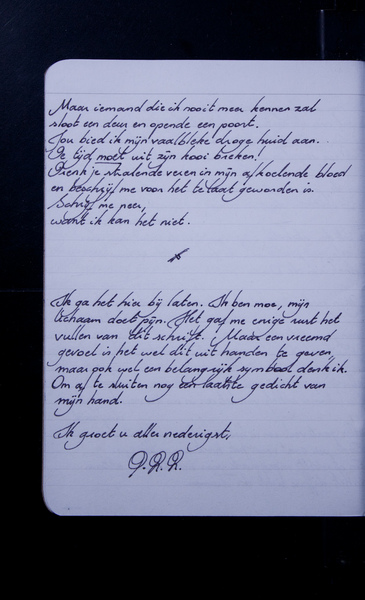 Maar iemand die ik nooit meer kennen zal
sloot een deur en opende een poort.
Jou bied ik mijn vaalbleke droge huid aan.
De tijd moet uit zijn kooi breken!
Drenk je stralende veren in mijn afkoelende bloed
en beschrijf me voor het te laat geworden is.
Schrijf me neer,
want ik kan het niet.
Ik ga het hier bij laten. Ik ben moe, mijn
lichaam doet pijn. Het gaf me enige rust het
vullen van dit schrift. Maar een vreemd
gevoel is het wel dit uit handen te geven,
maar ook wel een belangrijk symbool denk ik.
Om af te sluiten nog een laatste gedicht van
mijn hand.
Ik groet u allen nederigst,